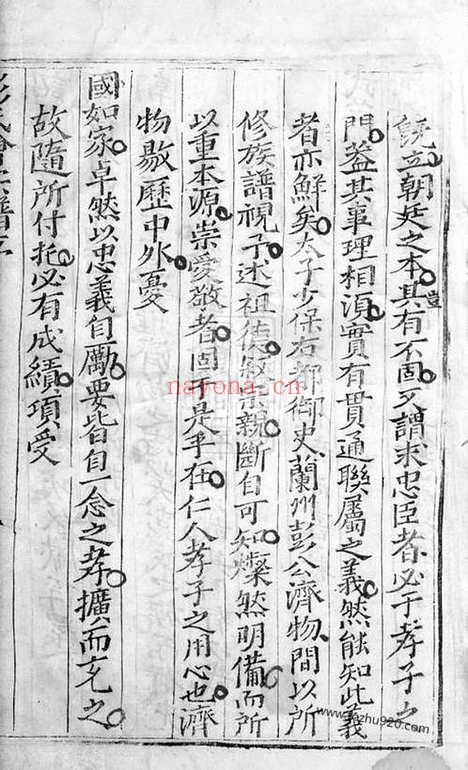 朝廷之本其有不固又謂求忠臣者必于孝子之
門蓋其事理相須實有貫通聯屬之義然能知此義
者亦鮮矣太子少保右都御史蘭州彭公濟物間以所
修族譜視予述祖德敘宗親斷自可知燦然明備而所
以重本源崇愛敬者固是乎在仁人孝子之用心也濟
物敭歷中外憂
國如家卓然以忠義自勵要皆自一念之孝擴而充之
故隨所付托必有成績頃受
nayona.cn
kongfz...zhu920.com